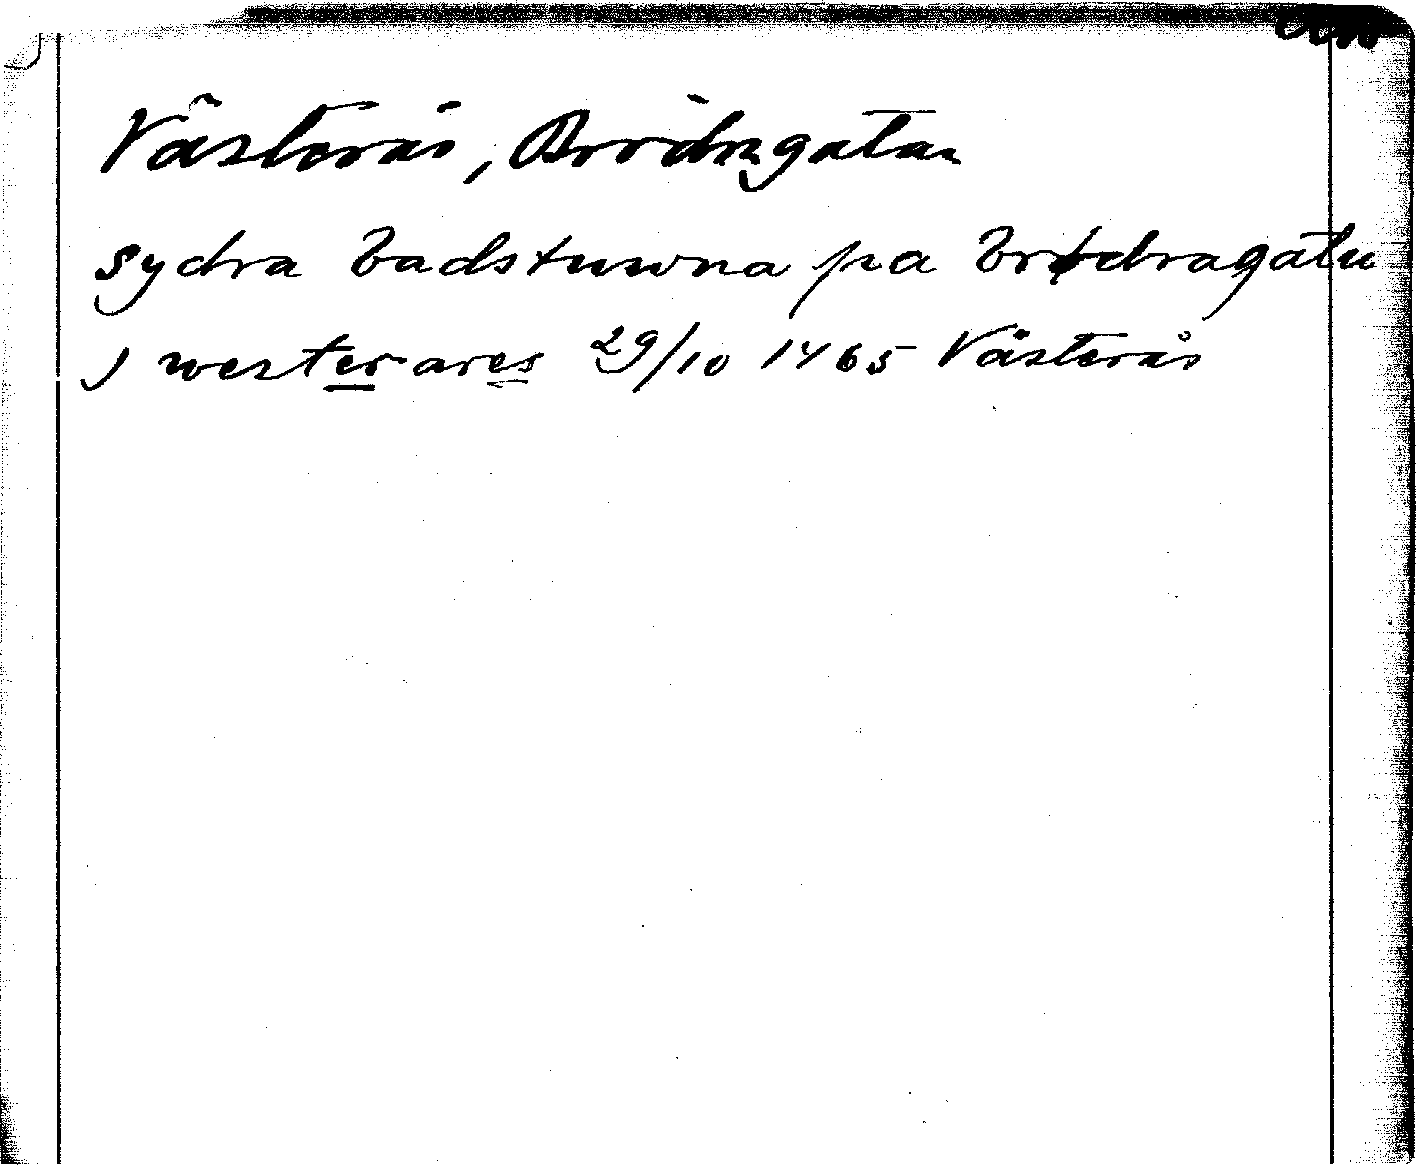 Västerås, Brödragatan
sydra badstuwna pa brødragatu
J westerares 29/10 1465 Västerås